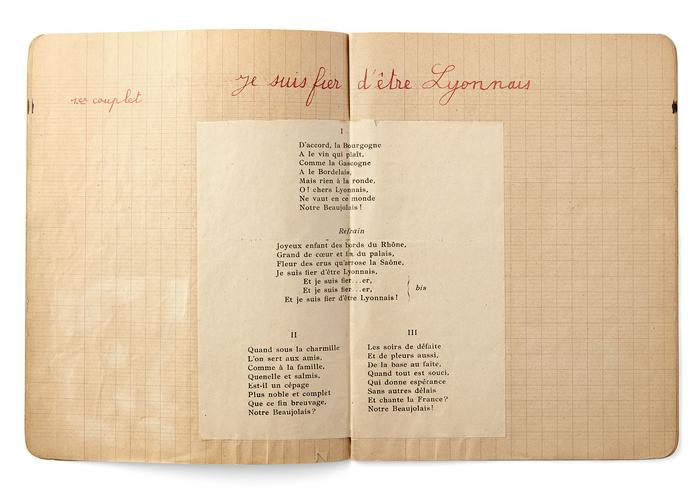 Je suis fier d'être Lyonnais
1er couplet
I
D'accord, la Bourgogne
A le vin qui plaît,
Comme la Gascogne
A le Bordelais,
Mais rien à la ronde,
O ! chers Lyonnais,
Ne vaut en ce monde
Notre Beaujolais !
Refrain
Joyeux enfant des bords du Rhône,
Grand de cœur et fin du palais,
Fleur des crus qu'arrose la Saône,
Je suis fier d'être Lyonnais,
Et je suis fier...er,
Et je suis fier...er,
Et je suis fier d'être Lyonnais !
bis
II
Quand sous la charmille
L'on sert aux amis,
Comme à la famille,
Quenelle et salmis,
Est-il un cépage
Plus noble et complet
Que ce fin breuvage,
Notre Beaujolais ?
III
Les soirs de défaite
Et de pleurs aussi,
De la base au faîte,
Quand tout est souci,
Qui donne espérance
Sans autres délais
Et chante la France ?
Notre Beaujolais !